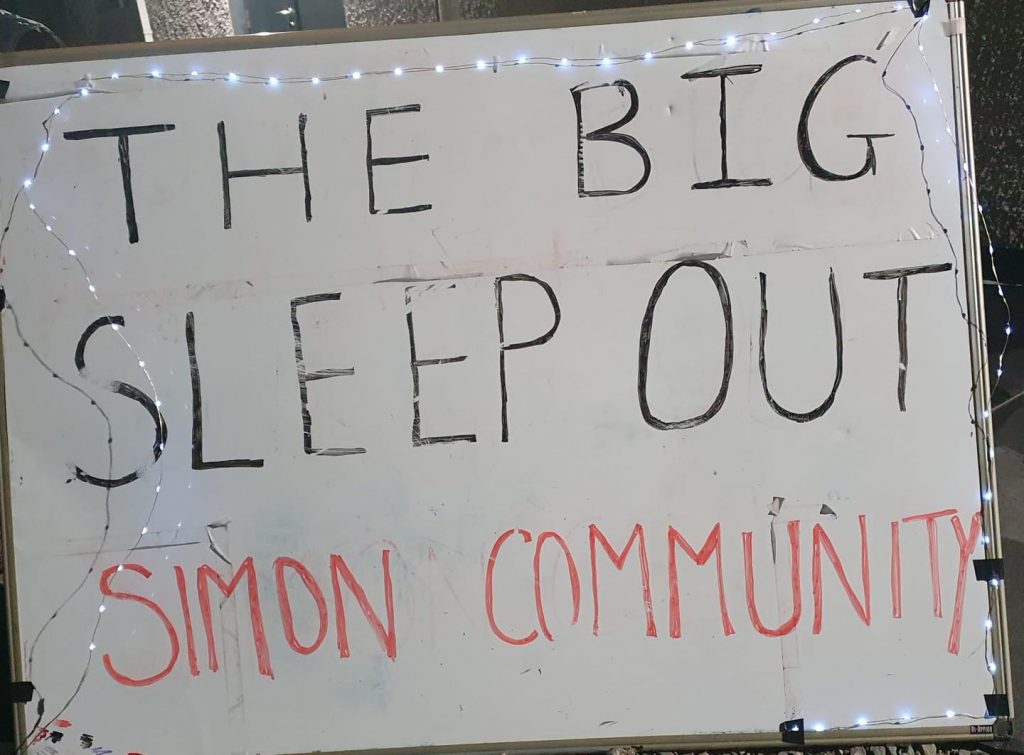 THE BIG
SLEEP OUT
SIMON COMMUNITY